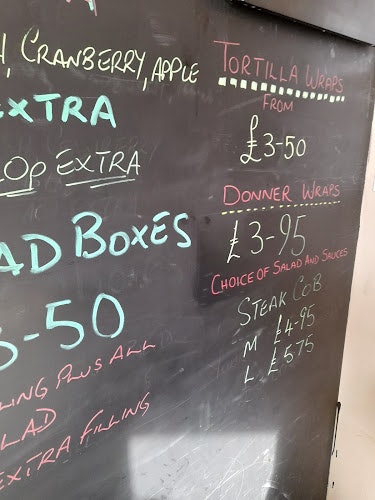 , CRANBERRY, APPLE
EXTRA
EXTRA
BOXES
-50
PLUS ALL
EXTRA FILLING
TORTILLA WRAPS
FROM
£3-50
DONNER WRAPS
£3-95
CHOICE OF SALAD AND SAUCES
STEAK COB
M £4-95
L £5.75